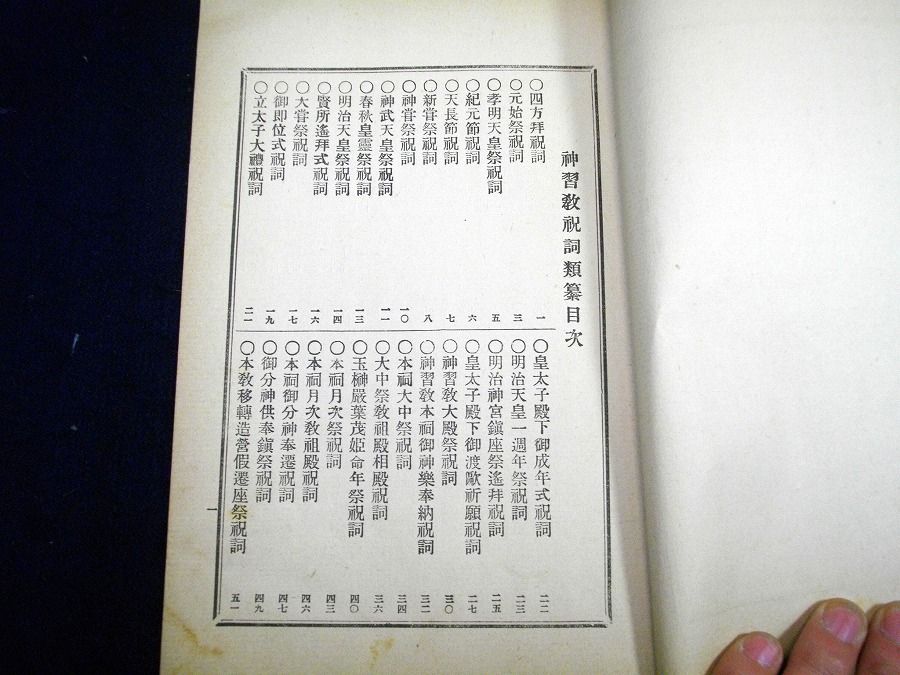 神習敎祝詞類纂目次
〇四方拜祝詞 一
〇元始祭祝詞 三
〇孝明天皇祭祝詞 五
〇紀元節祝詞 六
〇天長節祝詞 七
〇新甞祭祝詞 八
〇神甞祭祝詞 一〇
〇神武天皇祭祝詞 一一
〇春秋皇靈祭祝詞 一三
〇明治天皇祭祝詞 一四
〇賢所遙拜式祝詞 一六
〇大甞祭祝詞 一七
〇御即位式祝詞 一九
〇立太子大禮祝詞 二一
〇皇太子殿下御成年式祝詞 二二
〇明治天皇一週年祭祝詞 二三
〇明治神宮鎭座祭遙拜祝詞 二五
〇皇太子殿下御渡歐祈願祝詞 二七
〇神習敎大殿祭祝詞 三〇
〇神習敎本祠御神樂奉納祝詞 三二
〇本祠大中祭祝詞 三四
〇大中祭敎祖殿相殿祝詞 三六
〇玉榊嚴葉茂姫命年祭祝詞 四〇
〇本祠月次祭祝詞 四三
〇本祠月次敎祖殿祝詞 四六
〇本祠御分神奉遷祝詞 四七
〇御分神供奉鎭祭祝詞 四九
〇本敎移轉造營假遷座祭祝詞 五一
一